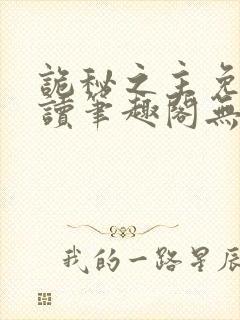 詭秘之主免
讀筆趣閣無
我的一路星辰